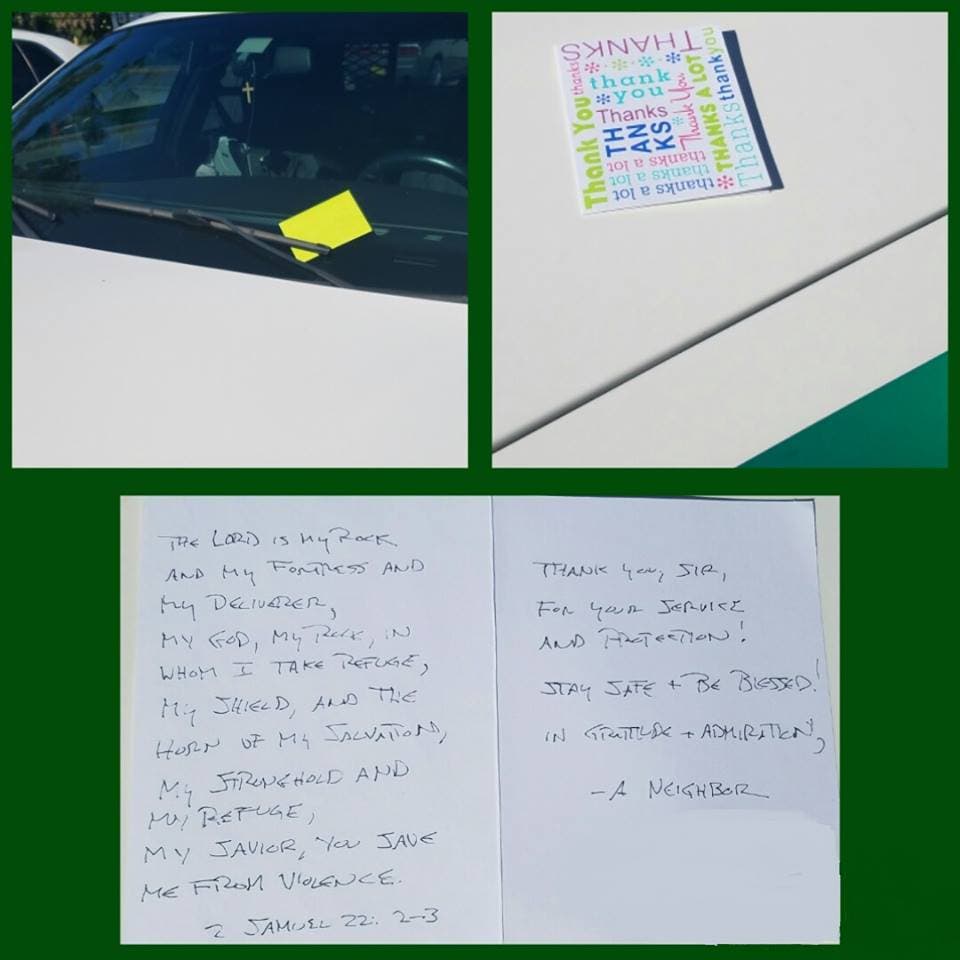 THANKS
thanks
Thank You
thank
you
Thanks
TH
AN
KS
Thank You
THANKS A LOT
thank you
Thanks
thanks a lot
thanks a lot
thanks a lot
THE LORD IS MY ROCK
AND MY FORTRESS AND
MY DELIVERER,
MY GOD, MY ROCK, IN
WHOM I TAKE REFUGE,
MY SHIELD, AND THE
HORN OF MY SALVATION,
MY STRONGHOLD AND
MY REFUGE,
MY SAVIOR, YOU SAVE
ME FROM VIOLENCE.
2 SAMUEL 22: 2-3
THANK YOU, SIR,
FOR YOUR SERVICE
AND PROTECTION!
STAY SAFE + BE BLESSED!
IN GRATITUDE + ADMIRATION,
- A NEIGHBOR